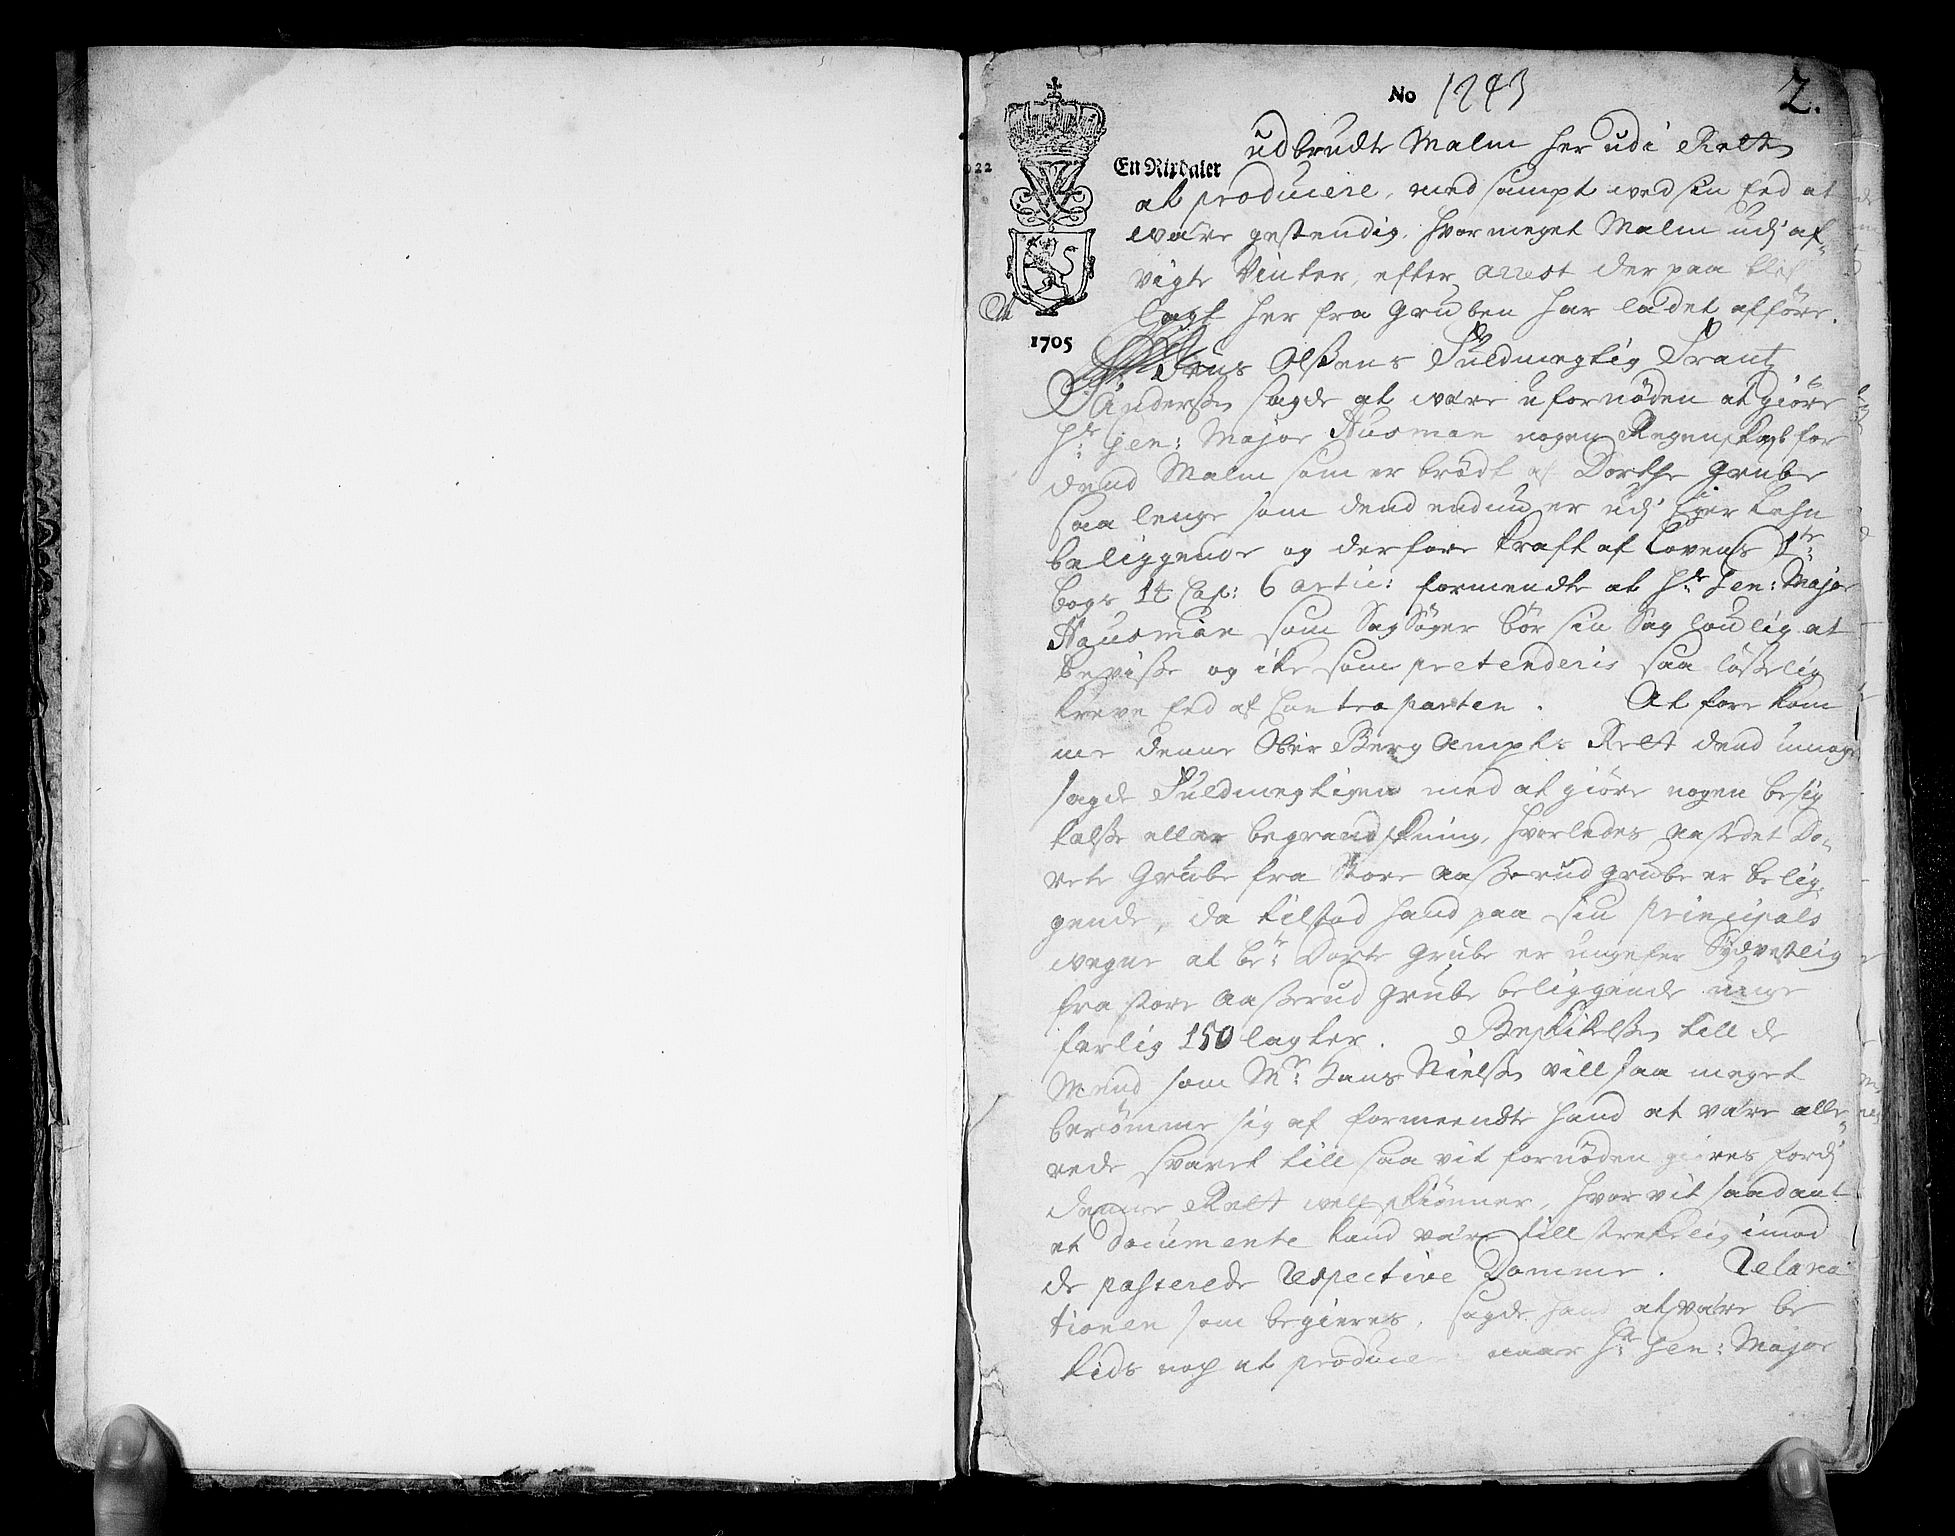 No 1243
2.
22
En Rixdaler
1705
udbrudte Malm her udi Rett
at producere, med sampt ved sin Eed at
være gestendig, hvor meget Malm udj af-
vigte Vinter, efter arrest der paa blef
lagt her fra gruben har ladet afføre.
Olsens Fuldmegtig Frantz
Andersen sagde at være ufornøden at giøre
Hr: Gen: Major Husman nogen Regenskab for
dend Malm som er brødt af Dorthe grube
saa lenge som dend endnu er udj Eger Lehn
beliggende og derfore Kraft af Lovens 1te:
bogs 14 Cap: 6 artic: formendte at Hr: Gen: Major
Hausman som Sag Søger bør sin Sag lovlig at
bevisse og ike som pretenderis saa løsselig
kreve Eed af Contraparten. At forekom
me denne Ober Berg Ampts Rett dend umage
sagde Fuldmegtigen med at giøre nogen besig
telse eller begrandskning, hvorledes aastedet Do-
rete Grube fra Store Aasserud grube er belig
gende, da tilstod hand paa sin principals
vegne at be:te Dorte Grube er ungefer Sydvestlig
fra store Aasserud Grube beliggende unge
ferlig 150 lagter. Beskikelsen till de
Mend som Mr: Hans Nielsen vill saa meget
berømme sig af formeendte hand at være alle-
rede svaret till saa vit fornøden giøres fordj
denne Rett well skiønner, hvor vit saadant
et Documente kand være till strekelig imod
de passerede respective Domme. Relara
tionen som begieres, sagde hand at være be
tids nog at producere naar Hr: Gen: Major